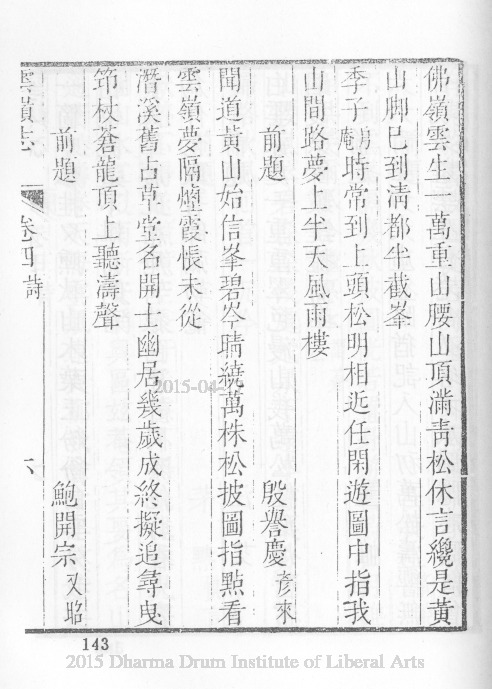 佛嶺雲生一萬重山腰山頂滿靑松休言纔是黄
山脚巳到淸都半截峯
季子庵時常到上頭松明相近任閑遊圖中指我
山間路夢上半天風雨樓
前題 殷譽慶彥來
聞道黄山始信峯碧岑晴繞萬株松披圖指點看
雲嶺夢隔煙霞悵未從
潛溪舊占草堂名開士幽居幾歲成終擬追尋曳
筇杖蒼龍頂上聽濤聲
前題 鮑開宗又昭
雲嶺志 卷四詩 六
143
2015-04-
2015 Dharma Drum Institute of Liberal Arts